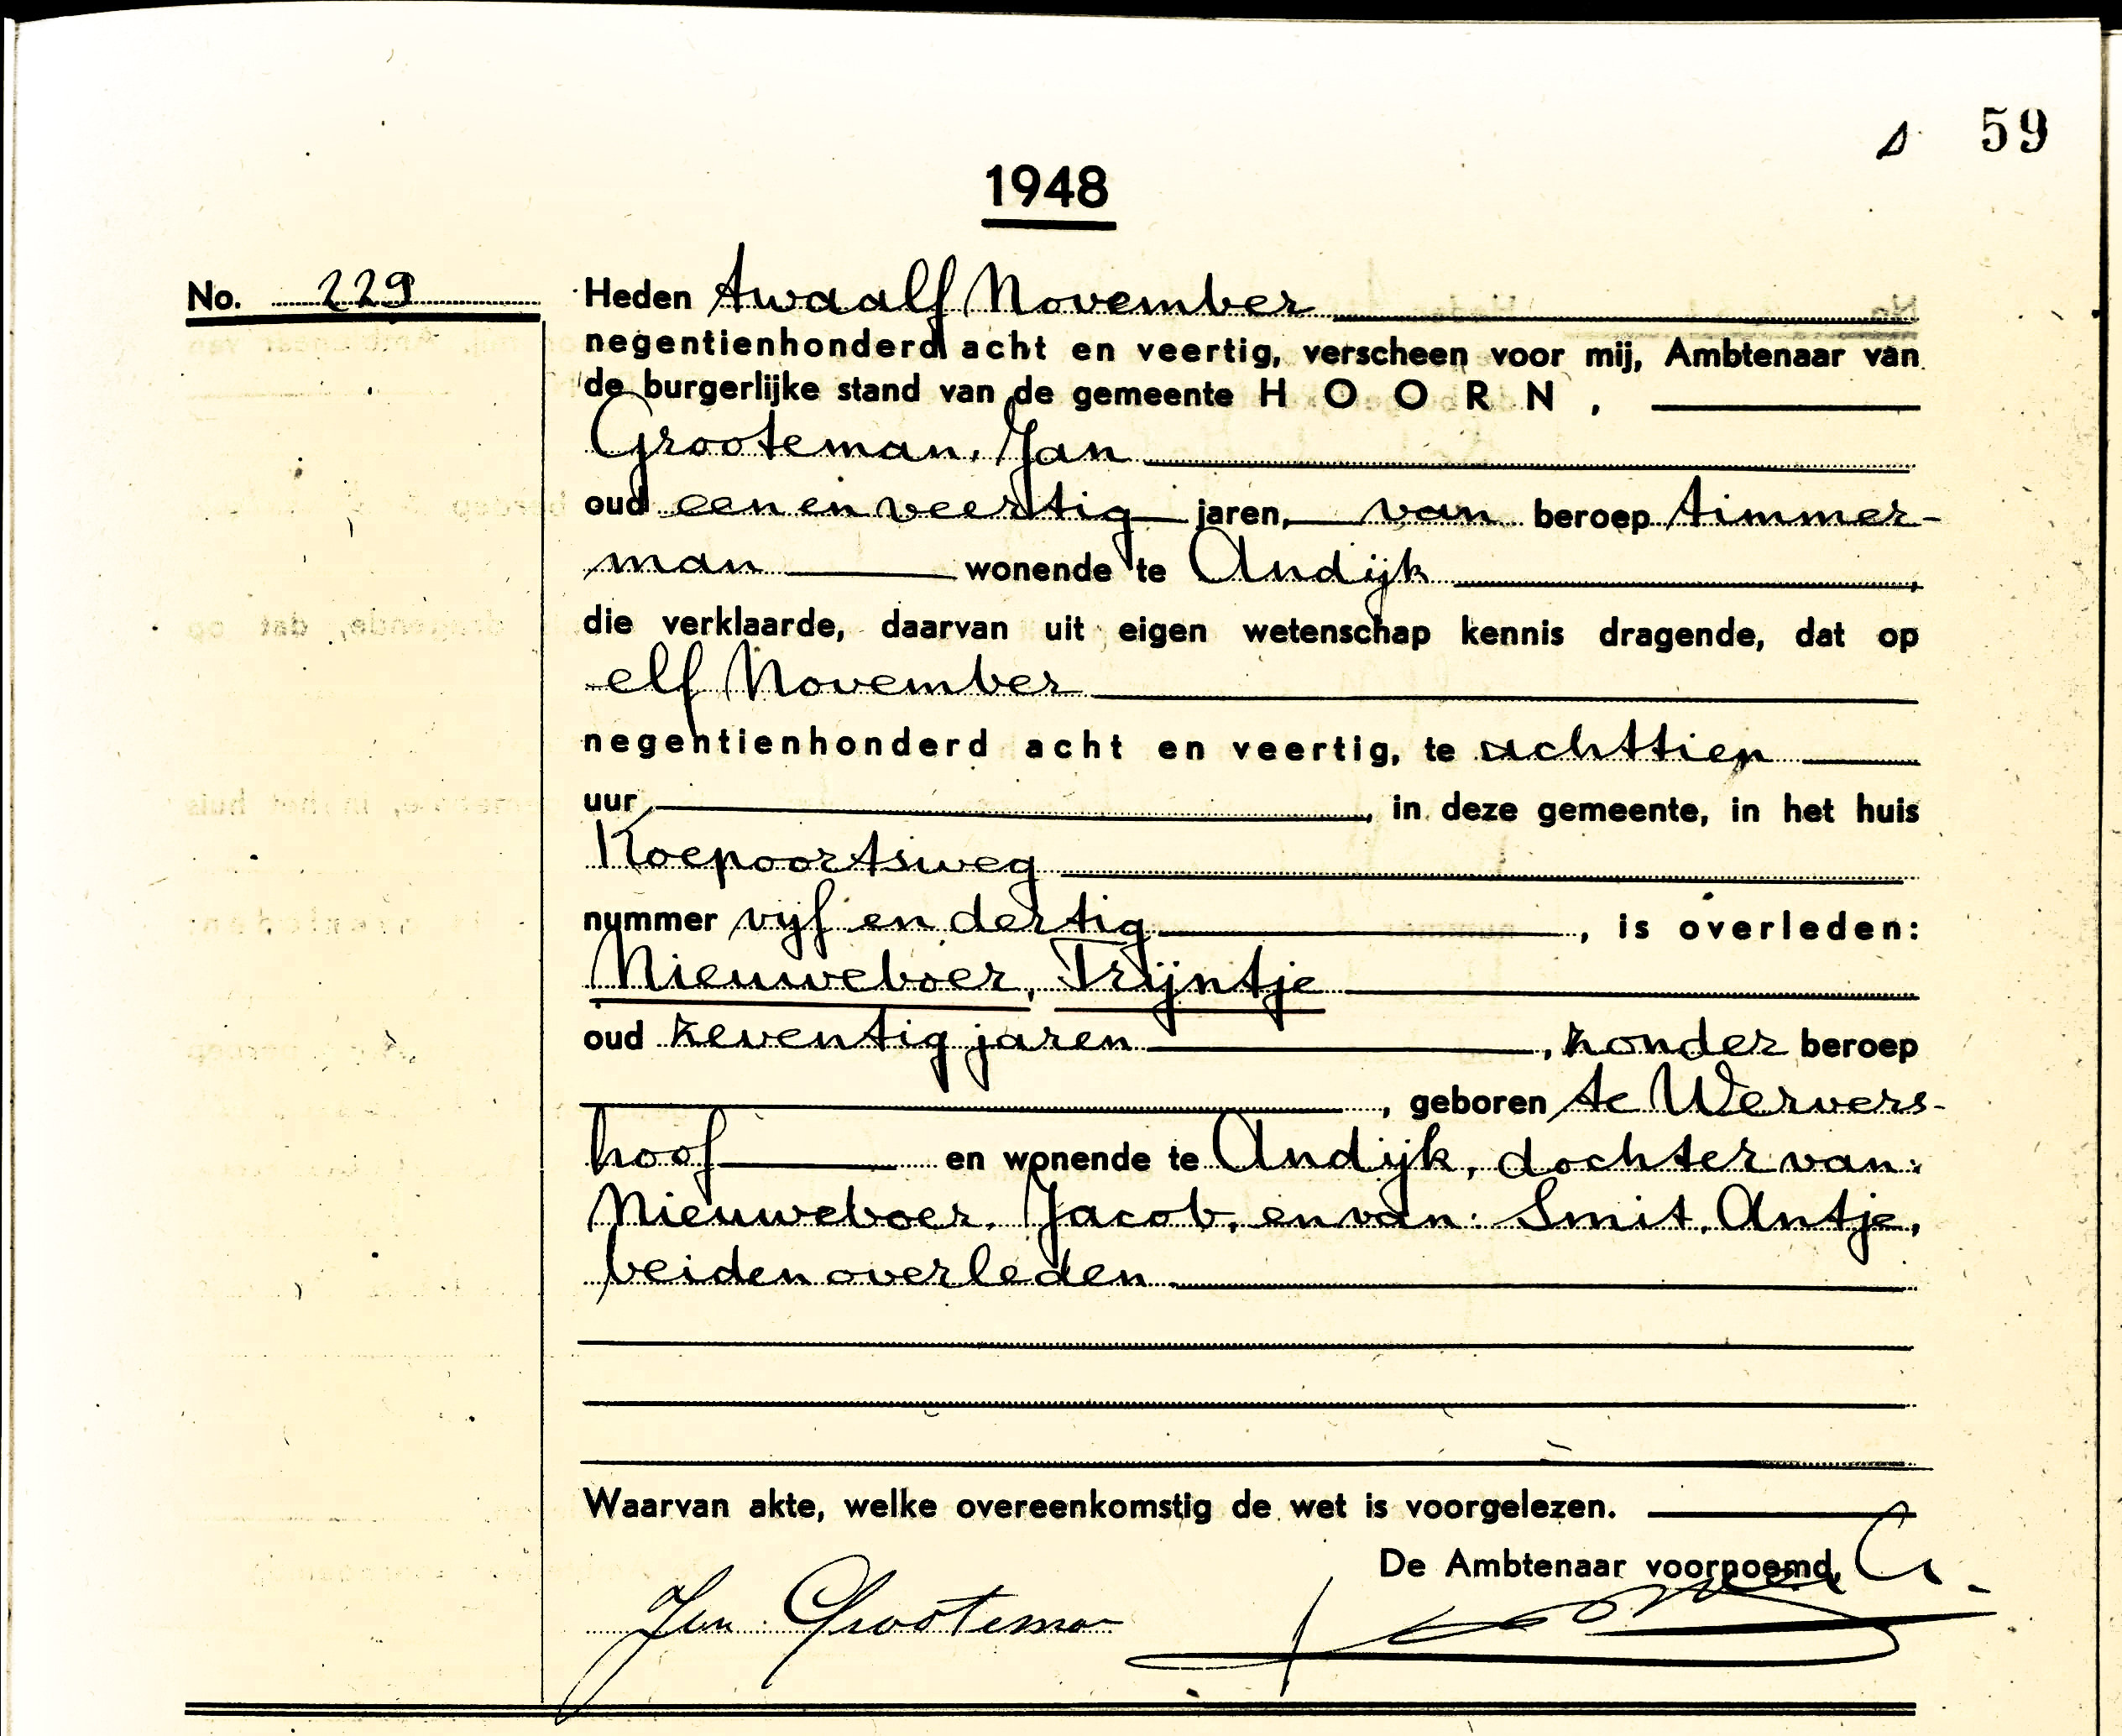 59
1948
No. 229
Heden twaalf November
negentienhonderd acht en veertig, verscheen voor mij, Ambtenaar van
de burgerlijke stand van de gemeente H O O R N ,
Grooteman, Jan
oud een en veertig jaren, van beroep timmer-
man wonende te Andijk,
die verklaarde, daarvan uit eigen wetenschap kennis dragende, dat op
elf November
negentienhonderd acht en veertig, te achttien
uur, in deze gemeente, in het huis
Koepoortsweg
nummer vijf en dertig, is overleden:
Nieuweboer, Trijntje
oud zeventig jaren, zonder beroep
, geboren te Wervers-
hoof en wonende te Andijk, dochter van:
Nieuweboer, Jacob, en van: Smit, Antje,
beiden overleden.
Waarvan akte, welke overeenkomstig de wet is voorgelezen.
De Ambtenaar voornoemd,
Jan Grooteman